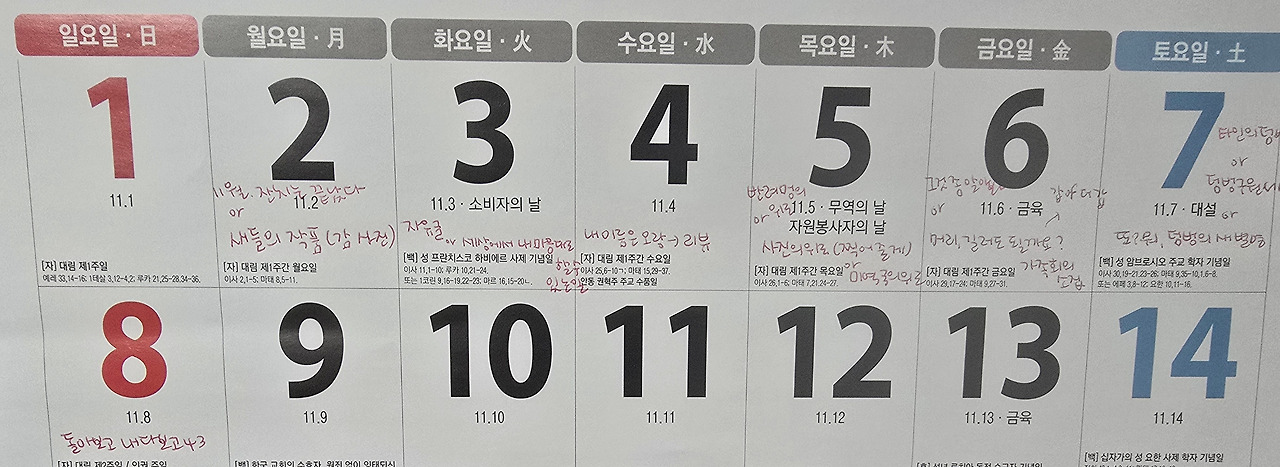 일요일·日
월요일·月
화요일·火
수요일·水
목요일·木
금요일·金
토요일·土
1
11.1
[자] 대림 제1주일
예레 33,14-16; 1테살 3,12-4,2; 루카 21,25-28.34-36.
2
11월, 잔치는 끝났다
11.2
or
새들의 작품 (감 사진)
[자] 대림 제1주간 월요일
이사 2,1-5; 마태 8,5-11.
3
11.3·소비자의 날
자유글
or 세상에서 내 마음대로
할 수
있는 일
[백] 성 프란치스코 하비에르 사제 기념일
이사 11,1-10; 루카 10,21-24.
또는 1코린 9,16-19.22-23; 마르 16,15-20
4
11.4
내 이름은 오랑 → 리뷰
[자] 대림 제1주간 수요일
이사 25,6-10; 마태 15,29-37.
안동 권혁주 주교 수품일
5
반려명의
위로
11.5·무역의 날
자원봉사자의 날
사진의 위로 (찍어줄게)
or
미역국의 위로
[자] 대림 제1주간 목요일
이사 26,1-6; 마태 7,21.24-27.
6
11.6·금육
or
머리, 길러도 될까요?
가족회의
소집
[자] 대림 제1주간 금요일
이사 29,17-24; 마태 9,27-31.
7
타인의 텃
or
텅범구원서
11.7·대설
or
텅범의 새별명
[백] 성 암브로시오 주교 학자 기념일
이사 30,19-21.23-26; 마태 9,35-10,1.6-8.
또는 에페 3,8-12; 요한 10,11-16.
8
11.8
돌아보고 내다보고 43
[자] 대림 제2주일 / 인권 주일
9
11.9
[백] 한국 교회의 수호자, 원죄 없이 잉태되신
10
11.10
11
11.11
12
11.12
13
11.13·금육
[홍] 성녀 루치아 동정 순교자 기념일
14
11.14
[백] 십자가의 성 요한 사제 학자 기념일